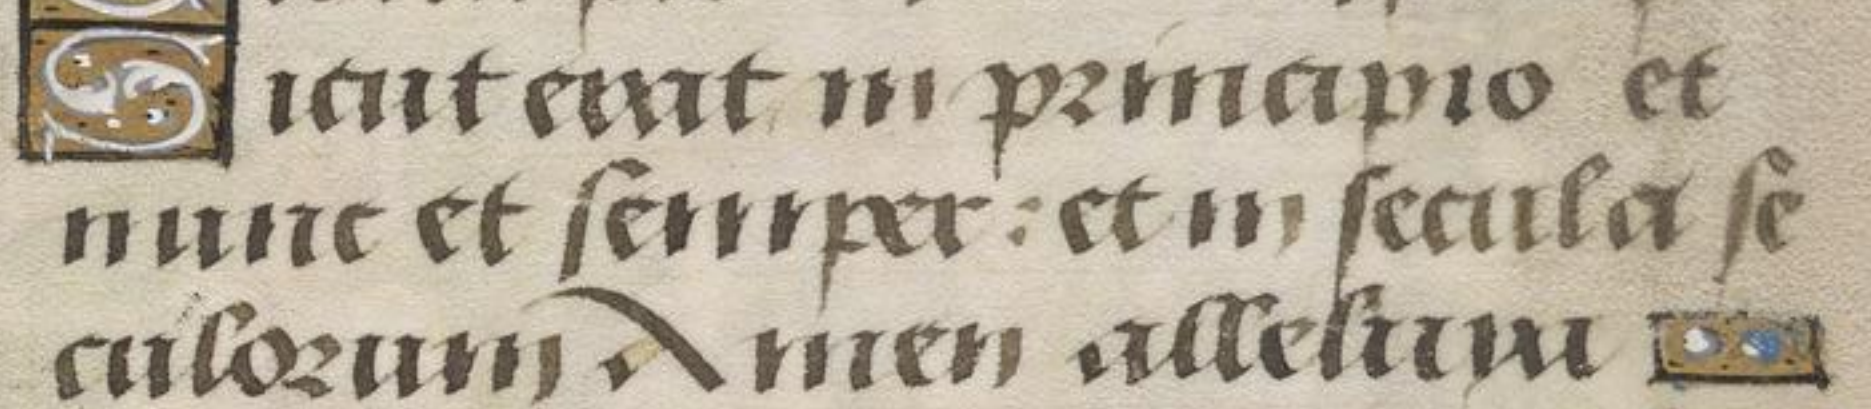 Sicut erat in principio et
nunc et semper: et in secula se
culorum Amen alleluya